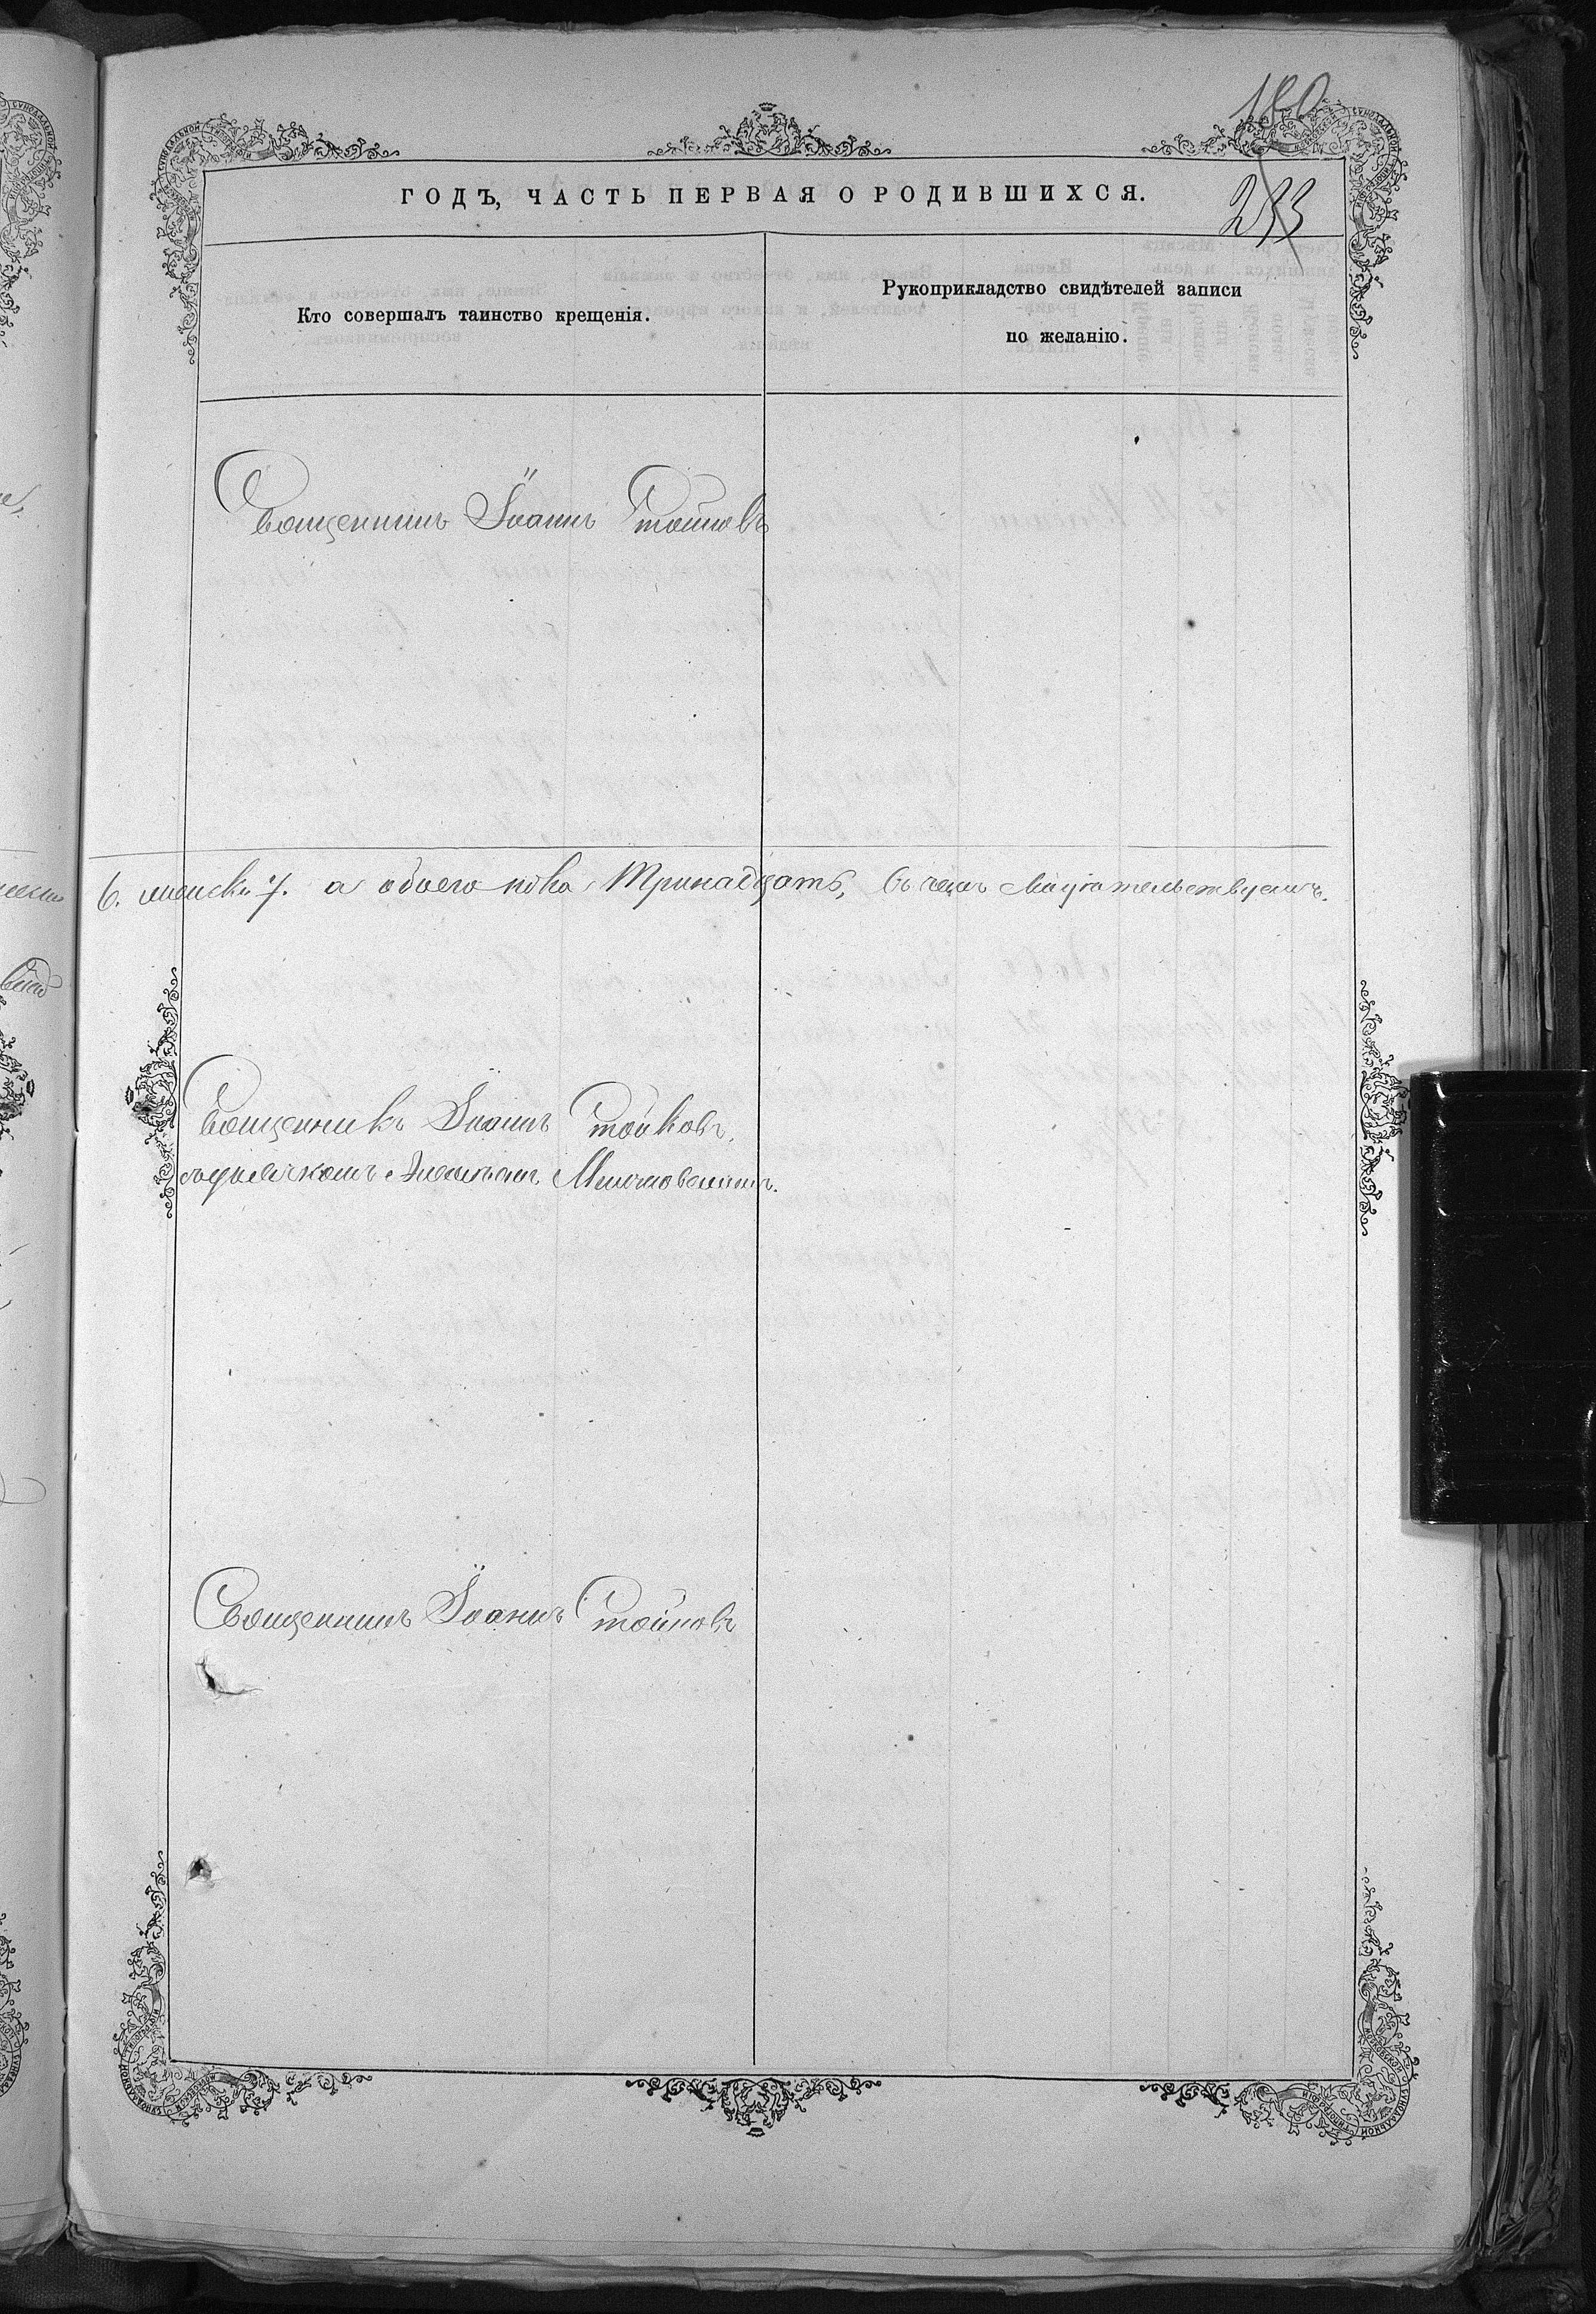 180
233
ГОДЪ, ЧАСТЬ ПЕРВАЯ О РОДИВШИХСЯ.
Кто совершалъ таинство крещенія.
Рукоприкладство свидѣтелей записи
по желанію.
Священникъ Іоаннъ Стойковъ
6. женска 7. а обоего пола Тринадцать, въ чемъ свидѣтельствуемъ.
Священникъ Іоаннъ Стойковъ,
съ дьячкомъ
Священникъ Іоаннъ Стойковъ